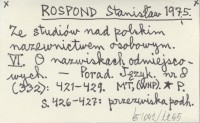 ROSPOND Stanisław 1975.
Ze studiów nad polskim
nazewnictwem osobowym.
VI. O nazwiskach odmiejsco-
wych. – Porad. Język. nr 8
(332): 421-429. MT, (WHP), * P.
s. 426-427: przezwiska podh.